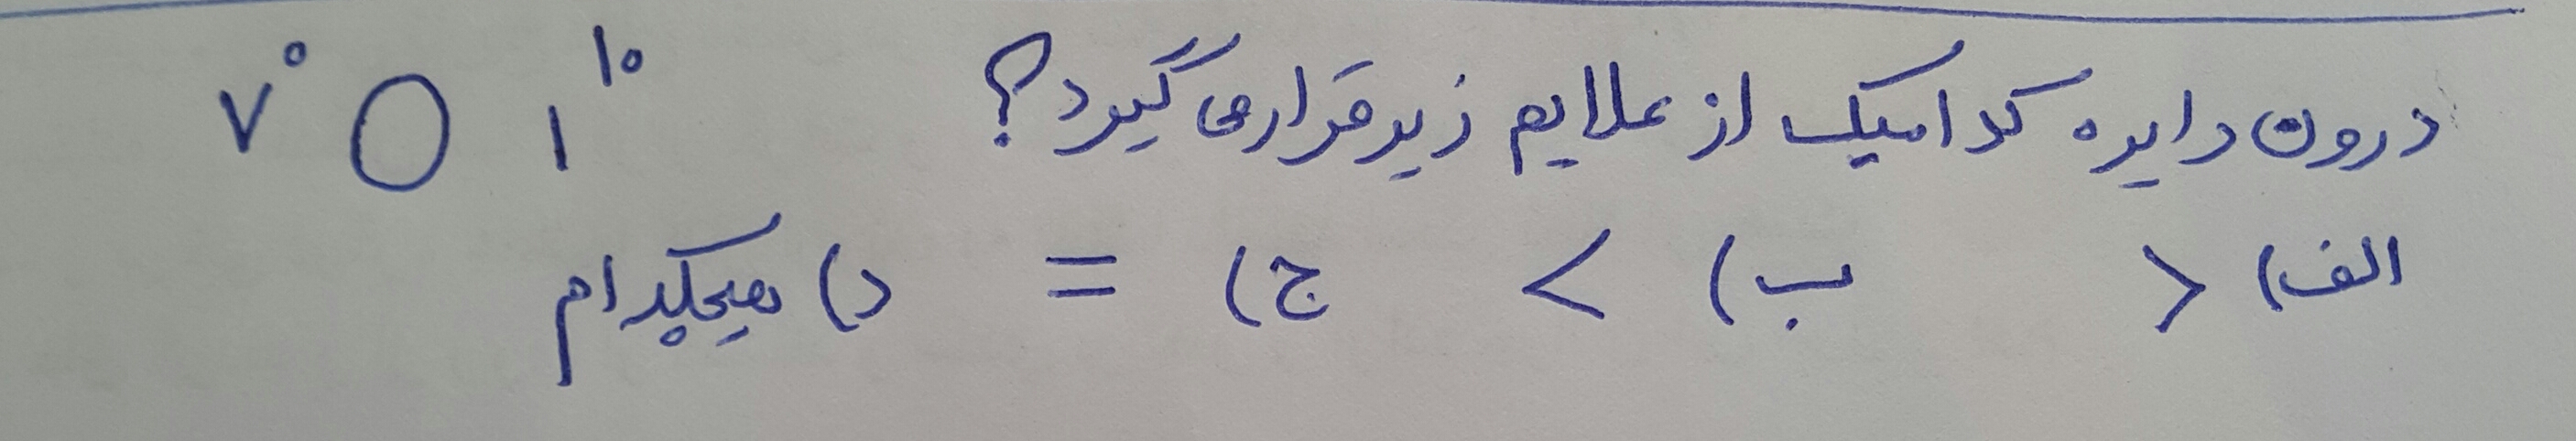 درون دایره کدامیک از علایم زیر قرار می گیرد؟ ۷° ○ ۱^۱۰
الف) > ب) < ج) = د) هیچکدام